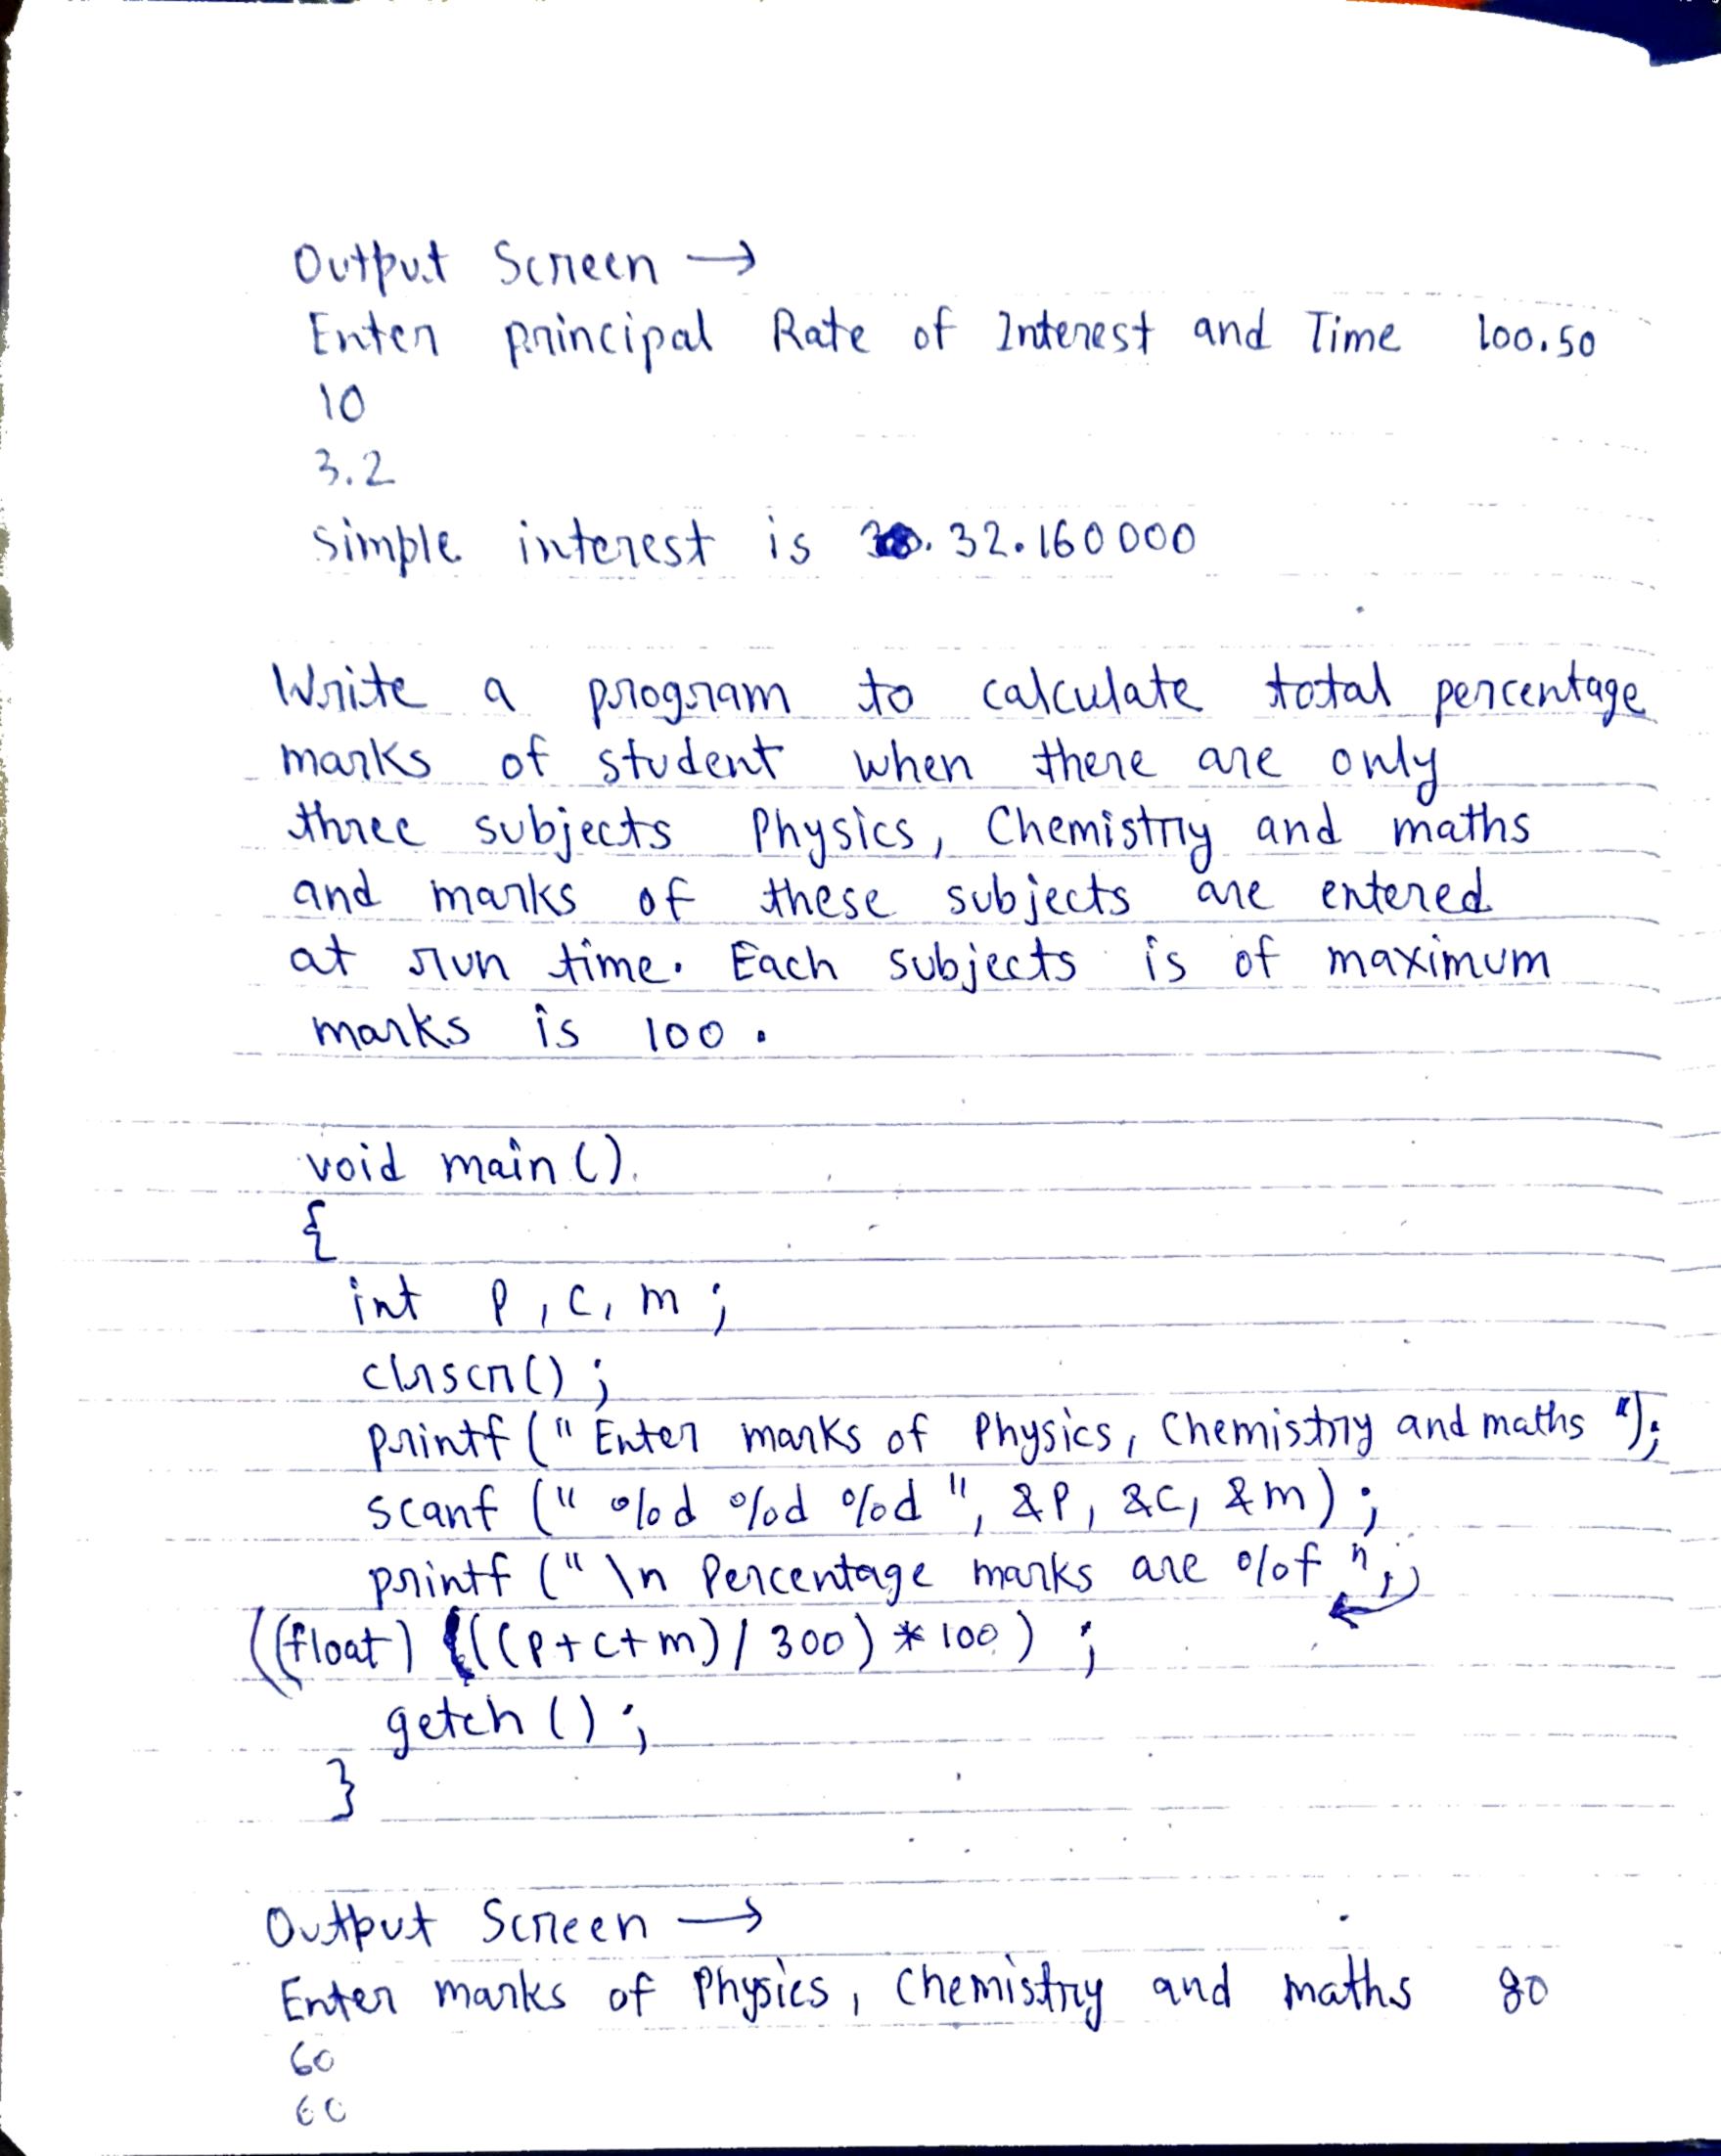 Output Screen →
Enter principal Rate of Interest and Time 100.50
10
3.2
simple interest is 32.160000
Write a program to calculate total percentage
marks of student when there are only
three subjects Physics, Chemistry and maths
and marks of these subjects are entered
at run time. Each subjects is of maximum
marks is 100.
void main()
{
int P, C, m;
clrscr();
printf(" Enter marks of Physics, Chemistry and maths ");
scanf (" %d %d %d ", &P, &C, &m);
printf (" \n Percentage marks are %f ",
((float) (((P+C+m)/300)*100) ;
getch();
}
Output Screen →
Enter marks of Physics, Chemistry and maths 80
60
60